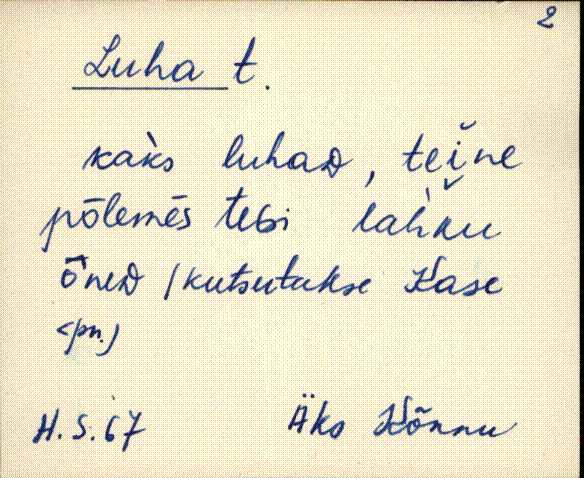 2
Luha t.
kak̀s luhaD, teĭne
pōlemēs teGi lah̀ku
ōneD /kutsutakse Kase
<pn.)
H.S.67 Äks Kõnnu